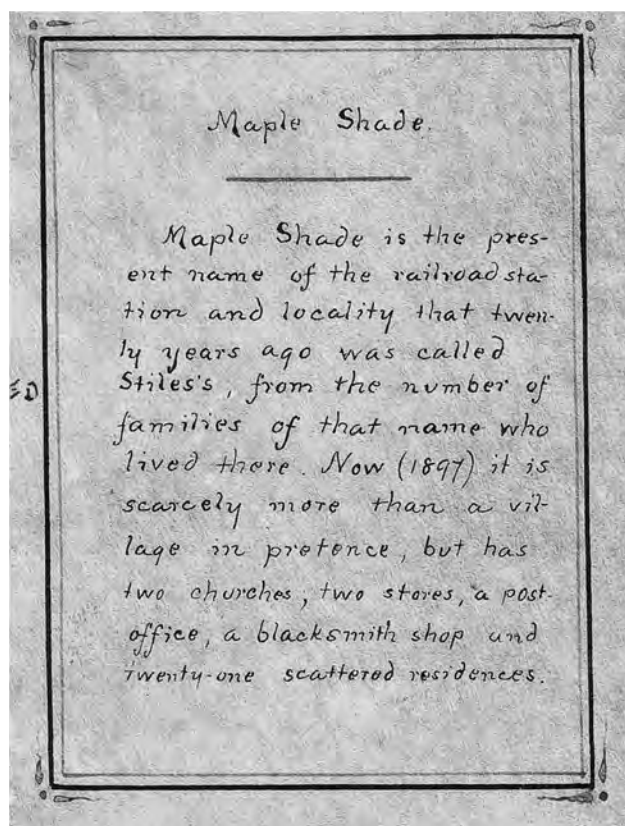 Maple Shade.
Maple Shade is the pres-
ent name of the railroad sta-
tion and locality that twen-
ty years ago was called
Stiles's, from the number of
families of that name who
lived there. Now (1897) it is
scarcely more than a vil-
lage in pretence, but has
two churches, two stores, a post-
office, a blacksmith shop and
twenty-one scattered residences.